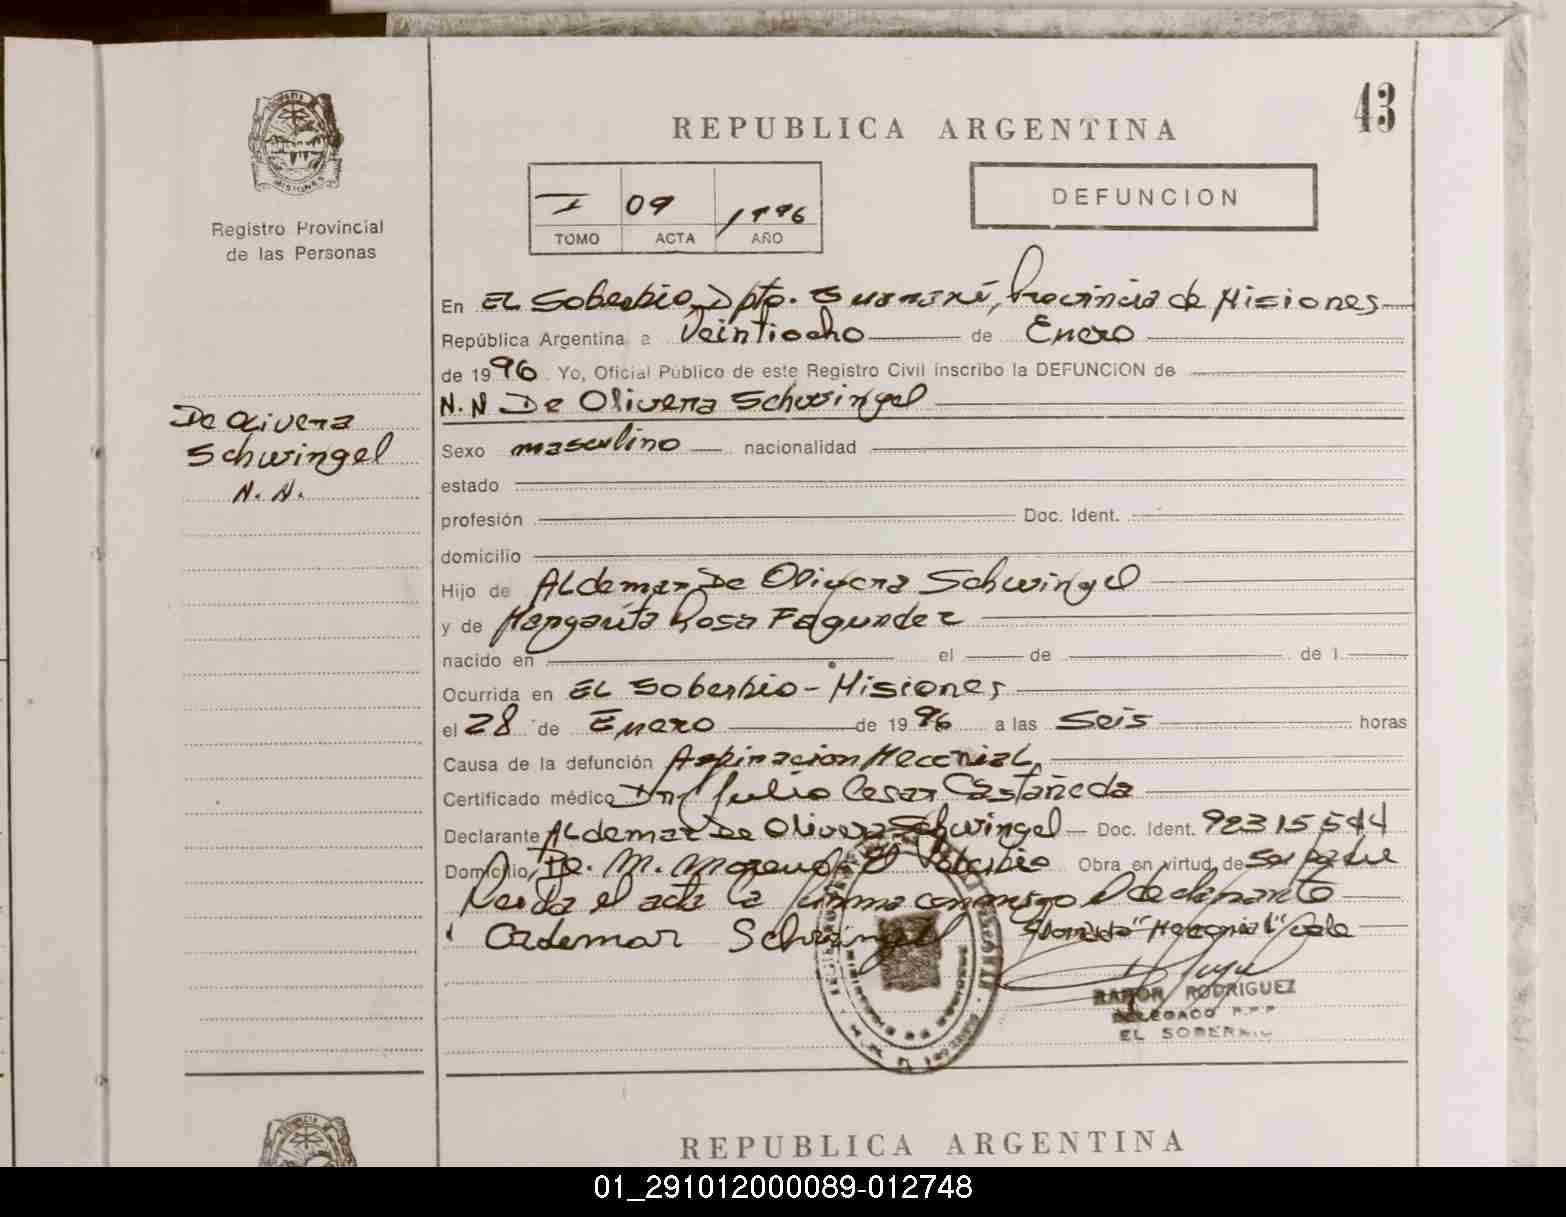 43
REPUBLICA ARGENTINA
I 09 1996
TOMO ACTA AÑO
DEFUNCION
PROVINCIA
MISIONES
Registro Provincial
de las Personas
De Olivera
Schwingel
N. N.
En El Soberbio, Dpto. Guaraní, Provincia de Misiones
República Argentina a Veintiocho de Enero
de 1996 Yo, Oficial Público de este Registro Civil inscribo la DEFUNCION de
N.N De Olivera Schwingel
Sexo masculino nacionalidad
estado
profesión Doc. Ident.
domicilio
Hijo de Aldemar De Olivera Schwingel
y de Margarita Rosa Fagundez
nacido en el de de 1
Ocurrida en El Soberbio - Misiones
el 28 de Enero de 1996 a las Seis horas
Causa de la defunción Aspiracion Meconial
Certificado médico Dr. Julio Cesar Castañeda
Declarante Aldemar De Olivera Schwingel Doc. Ident. 92315544
Domicilio M. Moreno El Soberbio Obra en virtud de ser padre
Leida el acta la firma conmigo el declarante
Ordemar Schwingel "Meconial" vale
RAMON RODRIGUEZ
DELEGADO R.P.P
EL SOBERBIO
REPUBLICA ARGENTINA
01_291012000089-012748